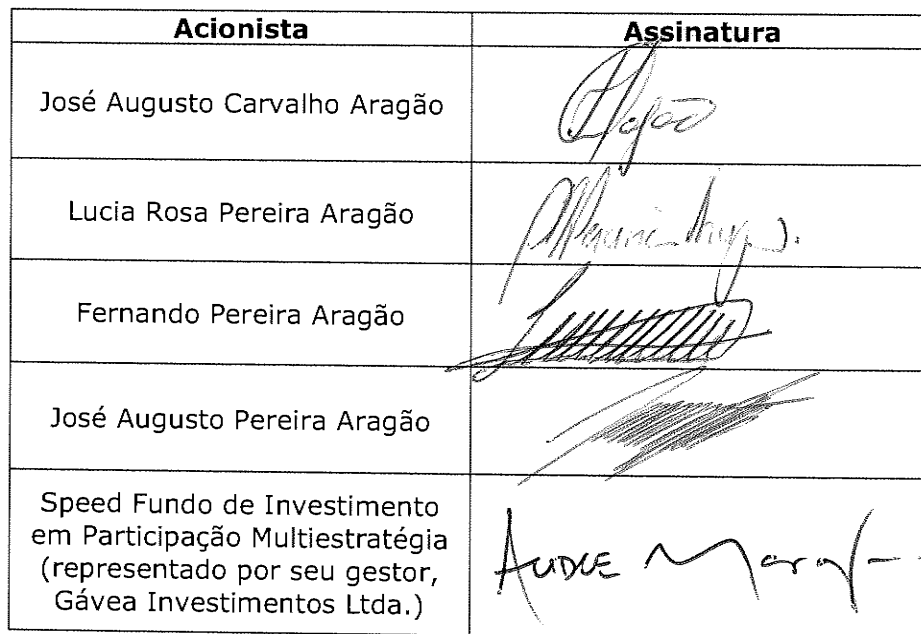 Acionista Assinatura
José Augusto Carvalho Aragão
Lucia Rosa Pereira Aragão
Fernando Pereira Aragão
José Augusto Pereira Aragão
Speed Fundo de Investimento
em Participação Multiestratégia
(representado por seu gestor,
Gávea Investimentos Ltda.)